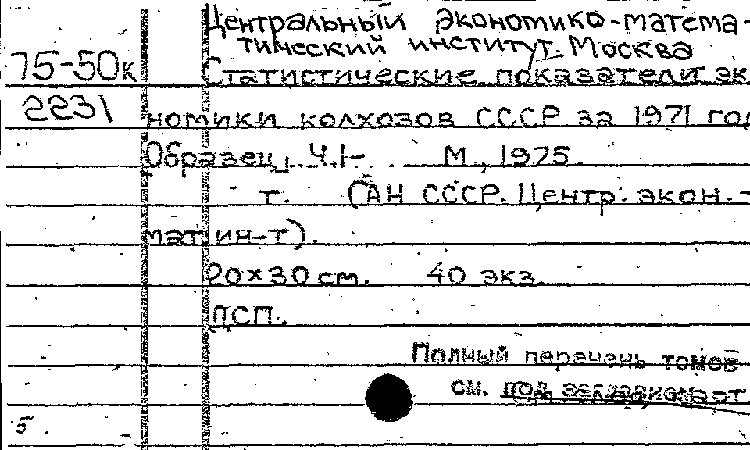 Центральный экономико-матема-
тический институт. Москва
75-50к Статистические показатели эк
2231 номики колхозов СССР за 1971 год
Образец. Ч.1- М., 1975.
т. (АН СССР. Центр. экон.-
мат. ин-т).
20×30 см. 40 экз.
ДСП.
Полный перечень томов
см. под заглавием
5